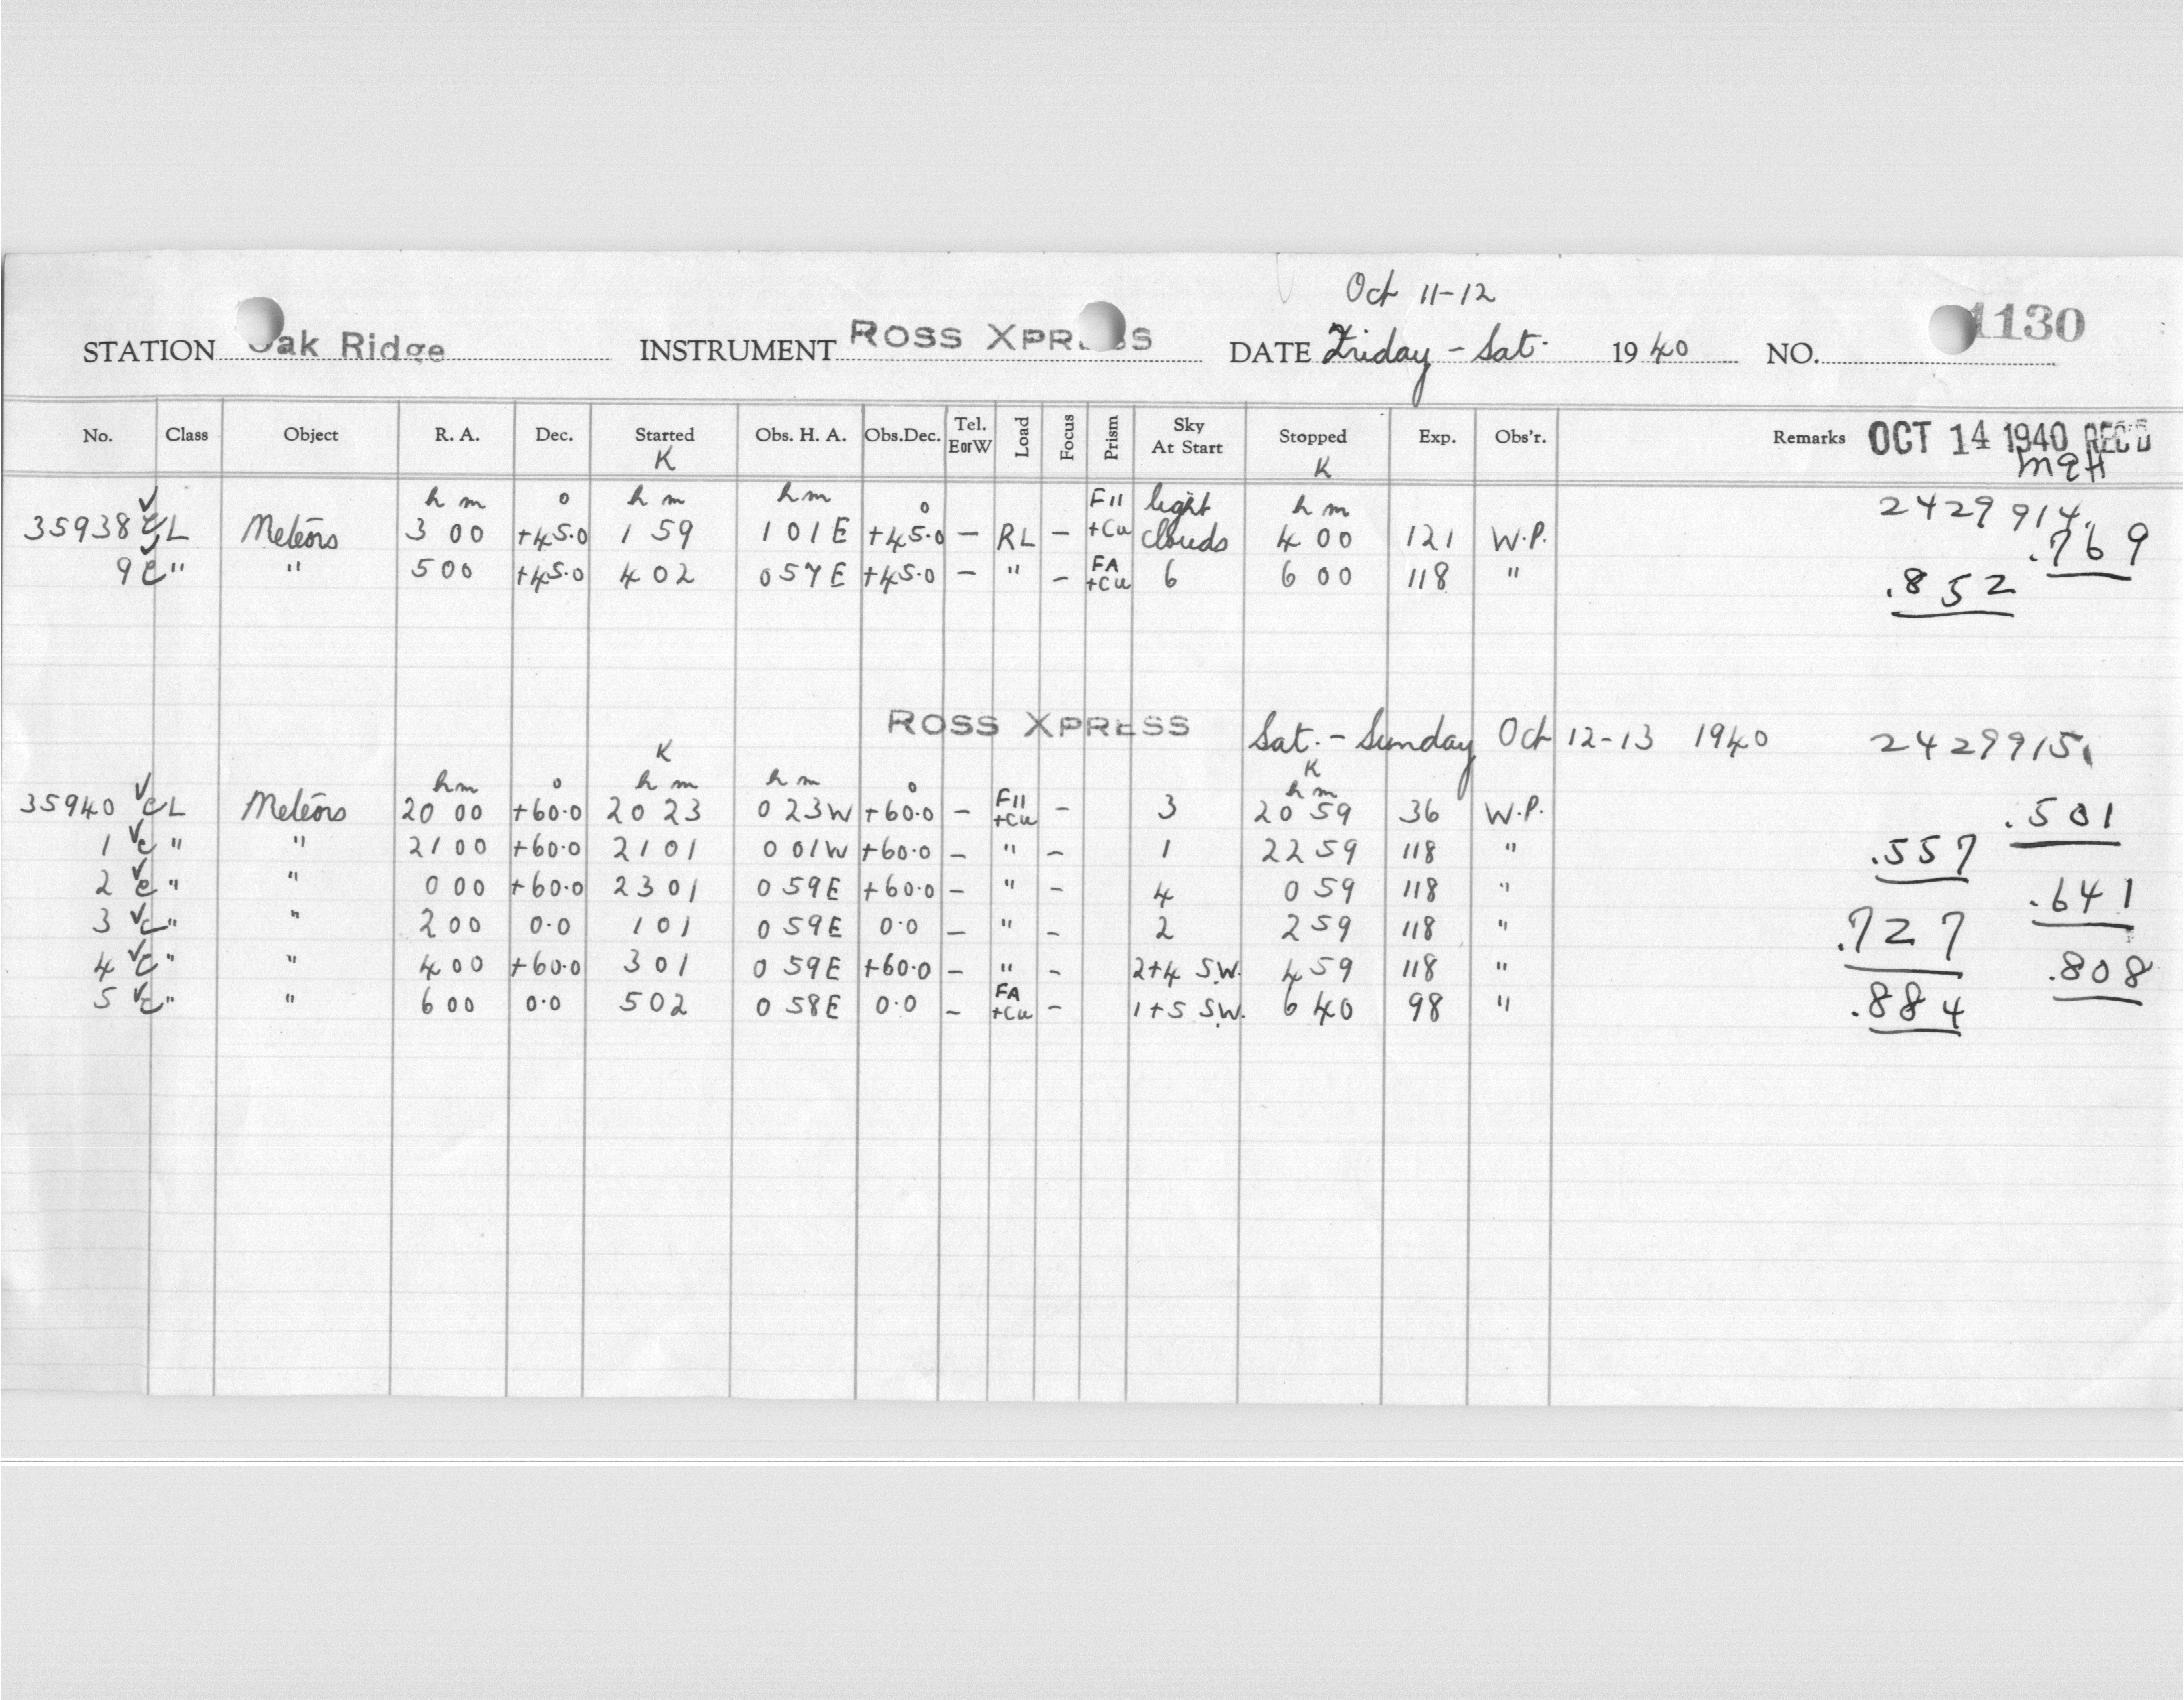 Oct 11-12
STATION Oak Ridge INSTRUMENT ROSS XPRESS DATE Friday - Sat. 1940 NO. 1130
No. Class Object R. A. Dec. Started Obs. H. A. Obs.Dec. Tel. E or W Load Focus Prism Sky At Start Stopped Exp. Obs'r. Remarks OCT 14 1940 REC'D
K K MQH
h m ° h m h m ° F11 light h m 2429914.
35938 ✓ c L Meteors 3 00 +45.0 1 59 1 01E +45.0 - RL - +Cu clouds 4 00 121 W.P. .769
9 ✓ c " " 5 00 +45.0 4 02 0 57E +45.0 - " - FA +Cu 6 6 00 118 " .852
ROSS XPRESS Sat. - Sunday Oct 12-13 1940 2429915.
K K
h m ° h m h m ° h m
35940 ✓ c L Meteors 20 00 +60.0 20 23 0 23W +60.0 - F11 +Cu - 3 20 59 36 W.P. .501
1 ✓ c " " 21 00 +60.0 21 01 0 01W +60.0 - " - 1 22 59 118 " .557
2 ✓ c " " 0 00 +60.0 23 01 0 59E +60.0 - " - 4 0 59 118 " .641
3 ✓ c " " 2 00 0.0 1 01 0 59E 0.0 - " - 2 2 59 118 " .727
4 ✓ c " " 4 00 +60.0 3 01 0 59E +60.0 - " - 2+4 S.W. 4 59 118 " .808
5 ✓ c " " 6 00 0.0 5 02 0 58E 0.0 - FA +Cu - 1+5 S.W. 6 40 98 " .884